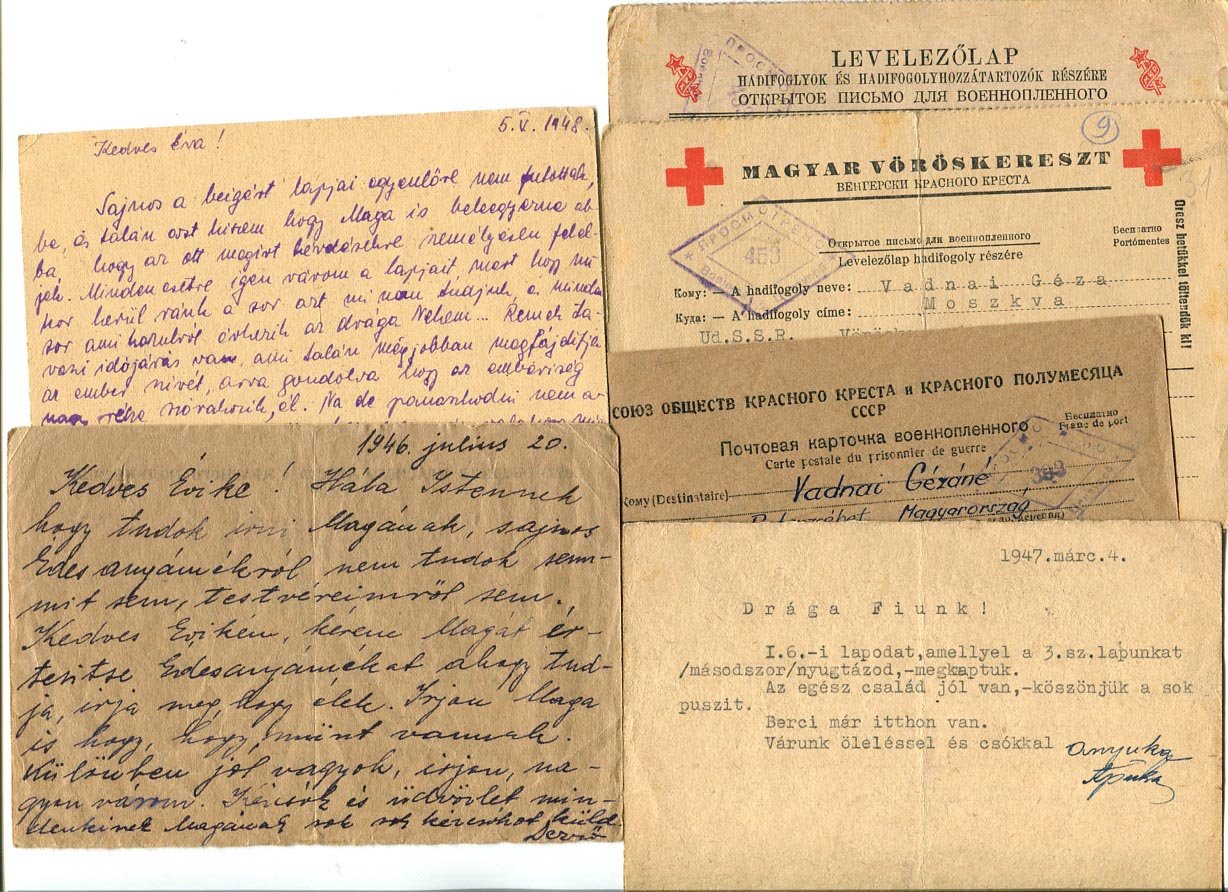 5.V. 1948.
Kedves Éva!
Sajnos a beigért lapjai egyenlőre nem futottak
be, és talán azt hiszem hogy Maga is beleegyezne ab-
ba, hogy az ott megirt kérdésekre személyesen felel-
jek. Mindenesetre igen várom a lapjait, mert hogy mi-
kor kerül ránk a sor azt mi nem tudjuk, a minden
sor ami hazulról érkezik az drága Nekem... Remek ta-
vaszi időjárás van, ami talán mégjobban megfájditja
az ember szivét, arra gondolva hogy az emberiség
nagy része szórakozik, él. Na de panaszkodni nem a-
1946. július 20.
Kedves Évike! Hála Istennek
hogy tudok irni Magának, sajnos
Édesanyámékról nem tudok sem-
mit sem, testvéreimről sem.
Kedves Évikém, kérem Magát ér-
tesitse Édesanyámékat ahogy tud-
ja, irja meg hogy élek. Irjon Maga
is hogy, hogy mint vannak.
Különben jól vagyok, irjon, na-
gyon várom. Kézcsók és üdvözlet min-
denkinek Magának sok sok kézcsókot küld
Dezső
LEVELEZŐLAP
HADIFOGLYOK ÉS HADIFOGOLYHOZZÁTARTOZÓK RÉSZÉRE
ОТКРЫТОЕ ПИСЬМО ДЛЯ ВОЕННОПЛЕННОГО
9
MAGYAR VÖRÖSKERESZT
ВЕНГЕРСКИ КРАСНОГО КРЕСТА
ПРОСМОТРЕНО
453
Открытое письмо для военнопленного
Levelezőlap hadifogoly részére
Бесплатно
Portómentes
Orosz betűkkel töltendők ki!
Кому: — A hadifogoly neve: Vadnai Géza
Куда: — A hadifogoly címe: Moszkva
Ud.S.S.R.
СОЮЗ ОБЩЕСТВ КРАСНОГО КРЕСТА и КРАСНОГО ПОЛУМЕСЯЦА
СССР
Почтовая карточка военнопленного
Carte postale du prisonnier de guerre
Бесплатно
Franc de port
393
Кому (Destinataire) Vadnai Gézáné
Magyarország
1947.márc.4.
Drága Fiunk!
I.6.-i lapodat,amellyel a 3.sz.lapunkat
/másodszor/nyugtázod,-megkaptuk.
Az egész család jól van,-köszönjük a sok
puszit.
Berci már itthon van.
Várunk öleléssel és csókkal Anyuka
Apuka